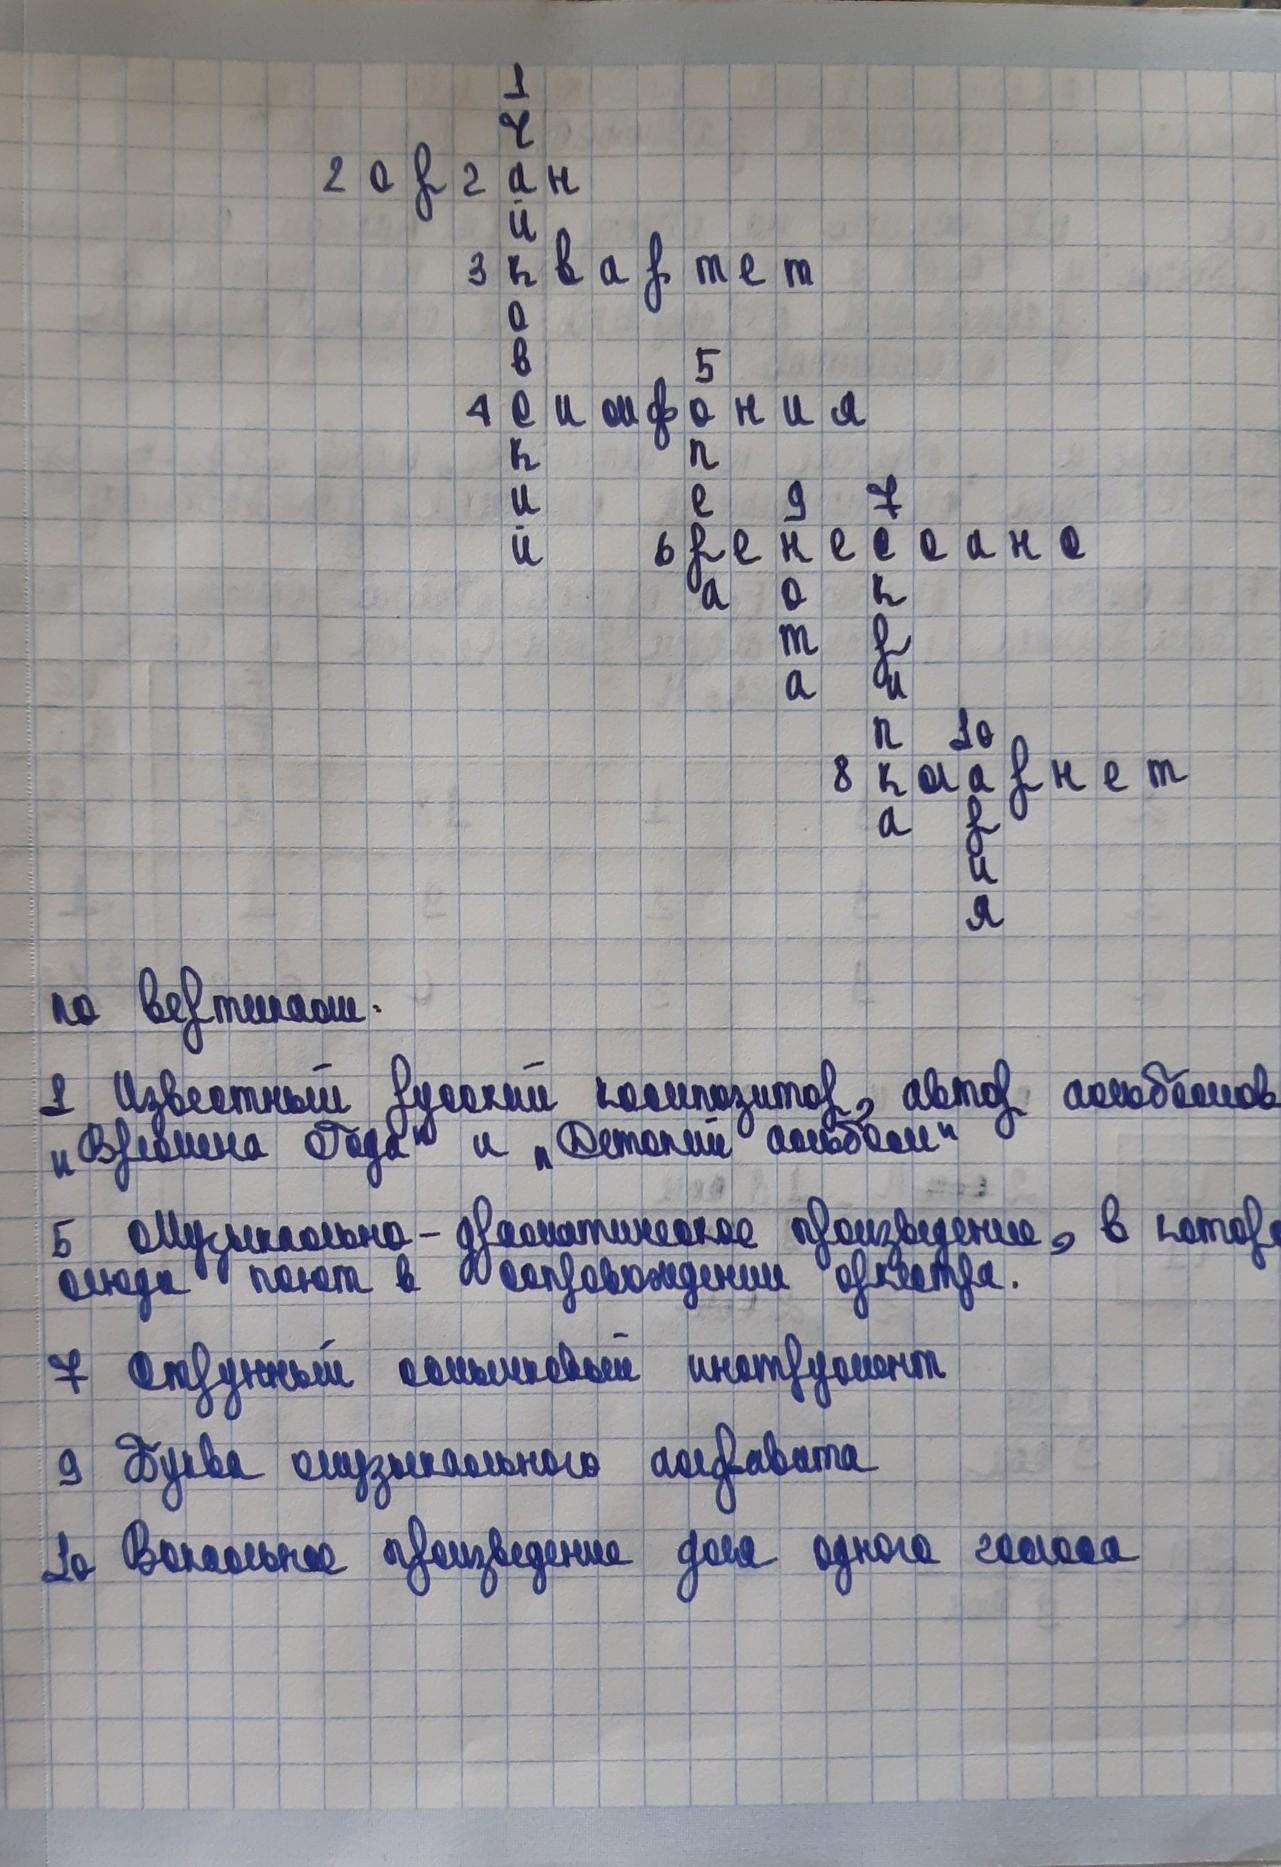 1
ч
2 орган
й
3 квартет
о
в 5
4 симфония
к п
и е 9 7
й 6 ренессанс
а о к
т р
а и
п 10
8 кларнет
а р
и
я
по вертикали.
1 Известный русский композитор, автор альбомов
"Времена Года" и "Детский альбом"
5 Музыкально-драматическое произведение, в котор
люди поют в сопровождении оркестра.
7 Струнный смычковый инструмент
9 Буква музыкального алфавита
10 Вокальное произведение для одного голоса